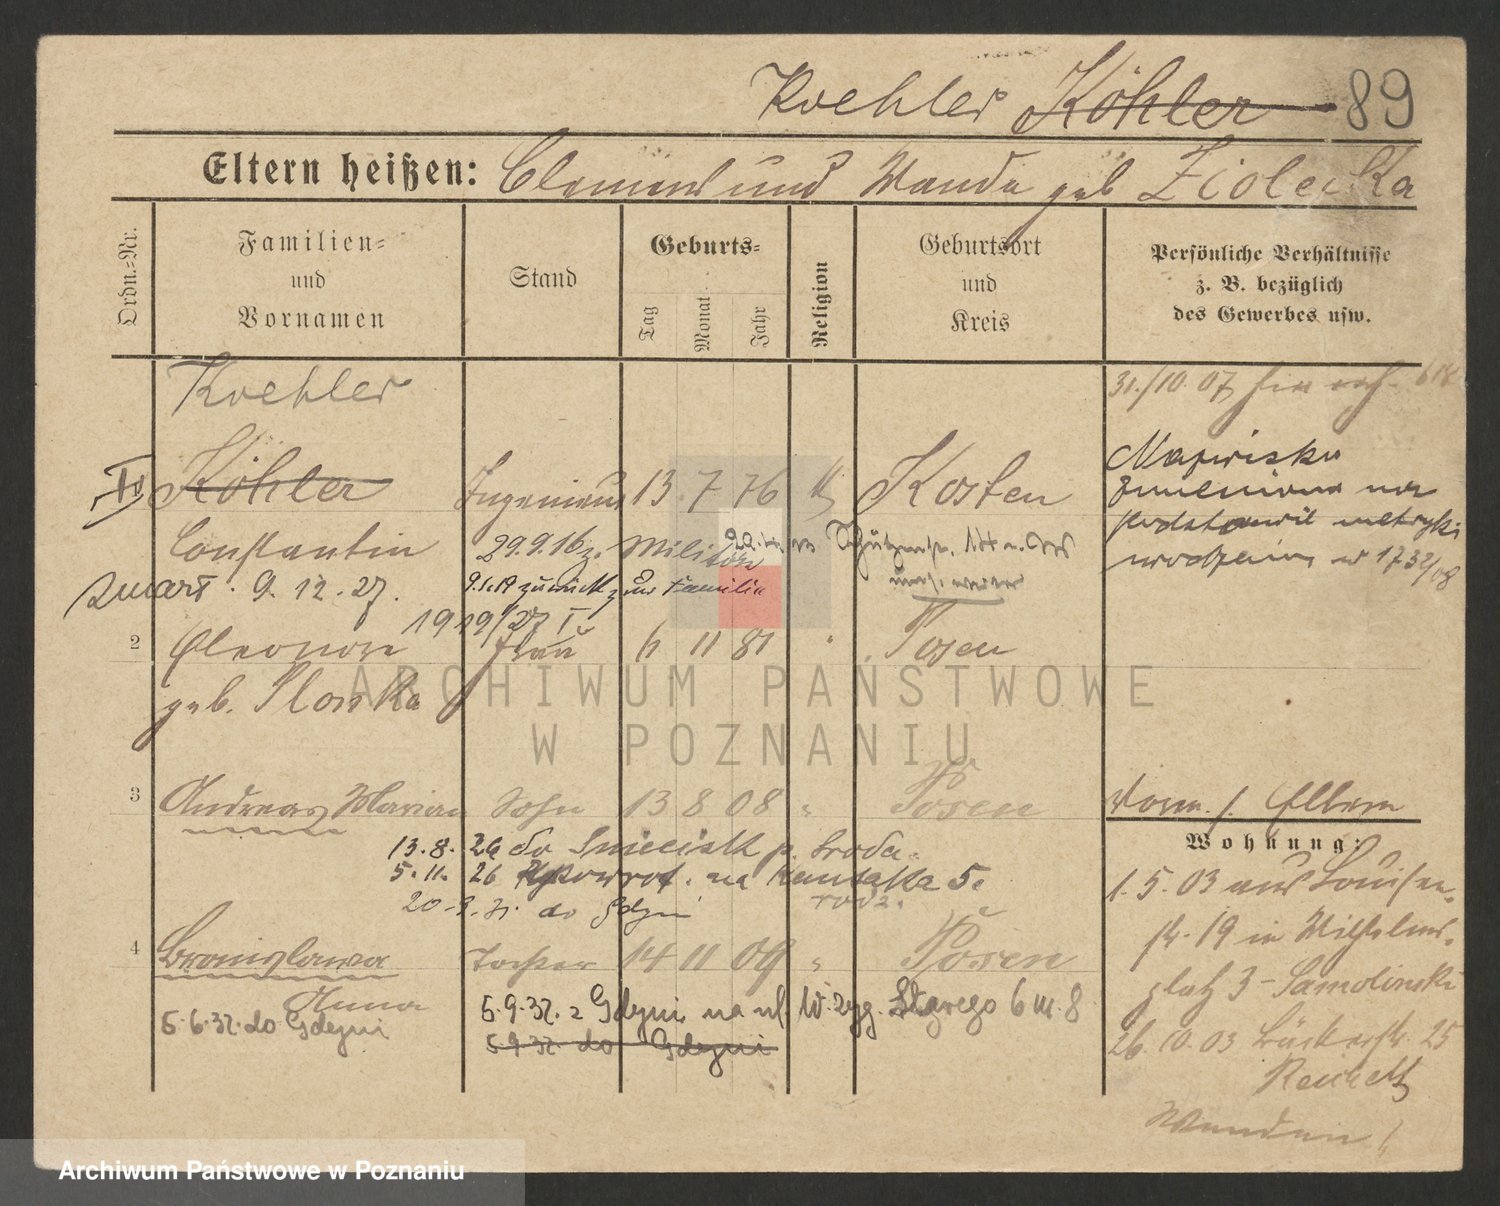 Koehler Köhler 89
Eltern heißen: Clemens und Wanda geb Ziolecka
Ordn.-Nr.
Familien-
und
Vornamen
Stand
Geburts-
Tag
Monat
Jahr
Religion
Geburtsort
und
Kreis
Persönliche Verhältnisse
z. B. bezüglich
des Gewerbes usw.
Koehler
31./10. 07
Köhler Ingenieur 13 7 76 k Kosten
Nazwisko
zmieniono na
podstawie metryki
urodzenia 1732/08
Constantin 29.9.16 z. Militär
zmarł. 9. 12. 27. 9.1.19 zurück z ur Familie
1919/27
2 Eleonore Frau 6 11 81 " Posen
geb. Plonska
3 Andreas Marian Sohn 13 8 08 " Posen
Vorm. s. Eltern
13.8. 26 do p. Środa.
5.11. 26 Powrot. na 5.
20.3.31. do Gdyni rodz.
Wohnung:
1. 5. 03 aus Louisen-
str. 19 in Wilhelms-
platz 3 - Samolinski
26. 10. 03 Bäckerstr. 25
4 Bronislawa Tochter 14 11 09 " Posen
Anna
5.6.32. do Gdyni
5.9.32. z Gdyni na ul. W. Zyg. Starego 6 m. 8
5.9.32. do Gdyni
Wenden!
ARCHIWUM PAŃSTWOWE
W POZNANIU
Archiwum Państwowe w Poznaniu